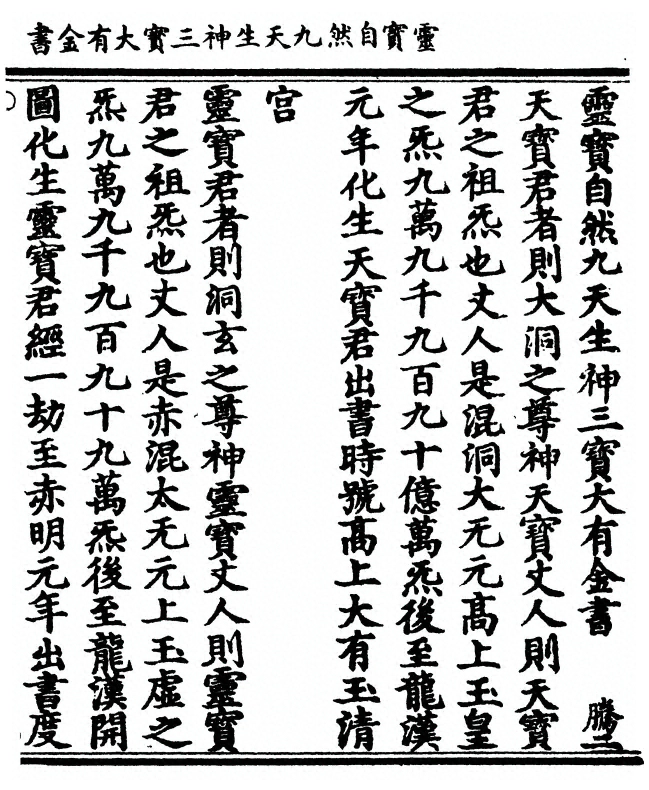 靈寶自然九天生神三寶大有金書
靈寶自然九天生神三寶大有金書
天寶君者則大洞之尊神天寶丈人則天寶
君之祖炁也丈人是混洞大无元高上玉皇
之炁九萬九千九百九十億萬炁後至龍漢
元年化生天寶君出書時號高上大有玉清
宫
靈寶君者則洞玄之尊神靈寶丈人則靈寶
君之祖炁也丈人是赤混太无元上玉虛之
炁九萬九千九百九十九萬炁後至龍漢開
圖化生靈寶君經一劫至赤明元年出書度